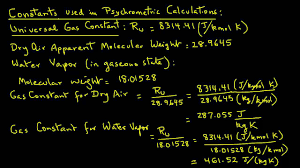 Constants used in Psychrometric Calculations:
Universal Gas Constant: Ru = 8314.41 (J/Kmol K)
Dry Air Apparent Molecular Weight: 28.9645
Water Vapor (in gaseous state):
Molecular weight: 18.01528
Gas Constant for Dry Air = Ru / 28.9645 = 8314.41 (J/kmol K) / 28.9645 (kg/kmol)
= 287.055 J / kg K
Gas Constant for Water Vapor = Ru / 18.01528 = 8314.41 (J/kmol K) / 18.01528 (kg/kmol)
= 461.52 J/kg K